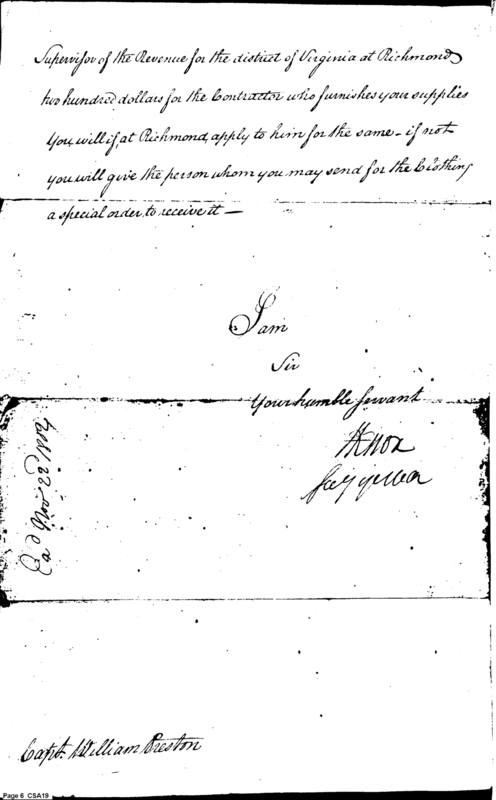 Supervisor of the Revenue for the district of Virginia at Richmond
two hundred dollars for the Contractor who furnishes your supplies
You will if, at Richmond, apply to him for the same – if not
you will give the person whom you may send for the Clothing
a special order, to receive it —
I am
Sir
Your humble Servant
HKnox
Secy of War
Capt. William Preston
Page 6 CSA19